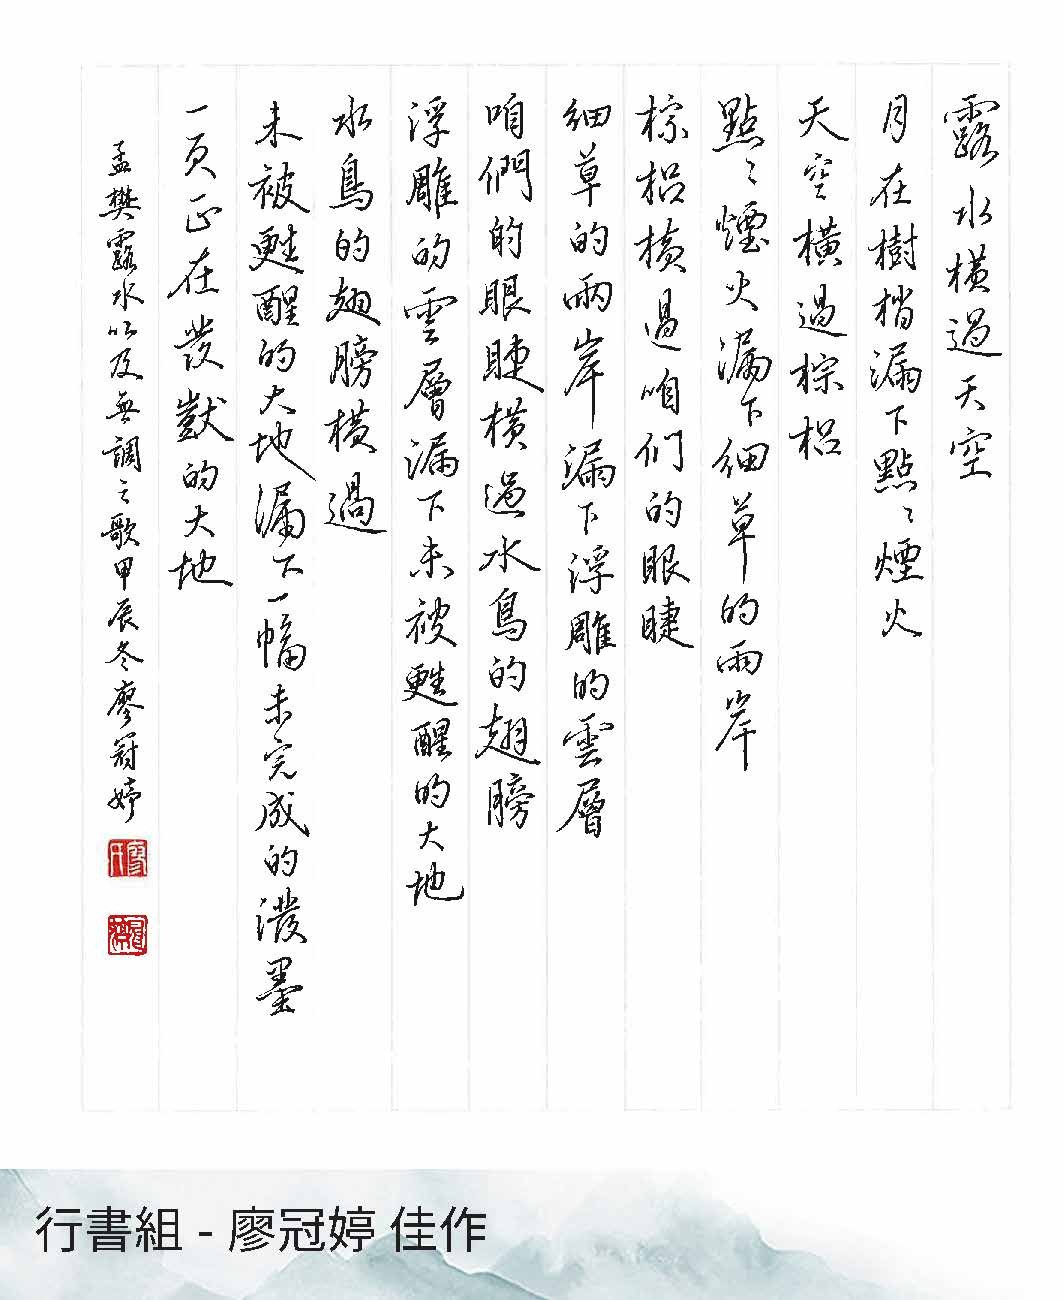 露水橫過天空
月在樹梢漏下點點煙火
天空橫過棕梠
點點煙火漏下細草的兩岸
棕梠橫過咱们的眼睫
細草的兩岸漏下浮雕的雲層
咱們的眼睫橫過水鳥的翅膀
浮雕的雲層漏下未被甦醒的大地
水鳥的翅膀橫過
未被甦醒的大地漏下一幅未完成的潑墨
一頁正在發獃的大地
孟樊露水以及無調之歌甲辰冬廖冠婷
行書組 - 廖冠婷 佳作